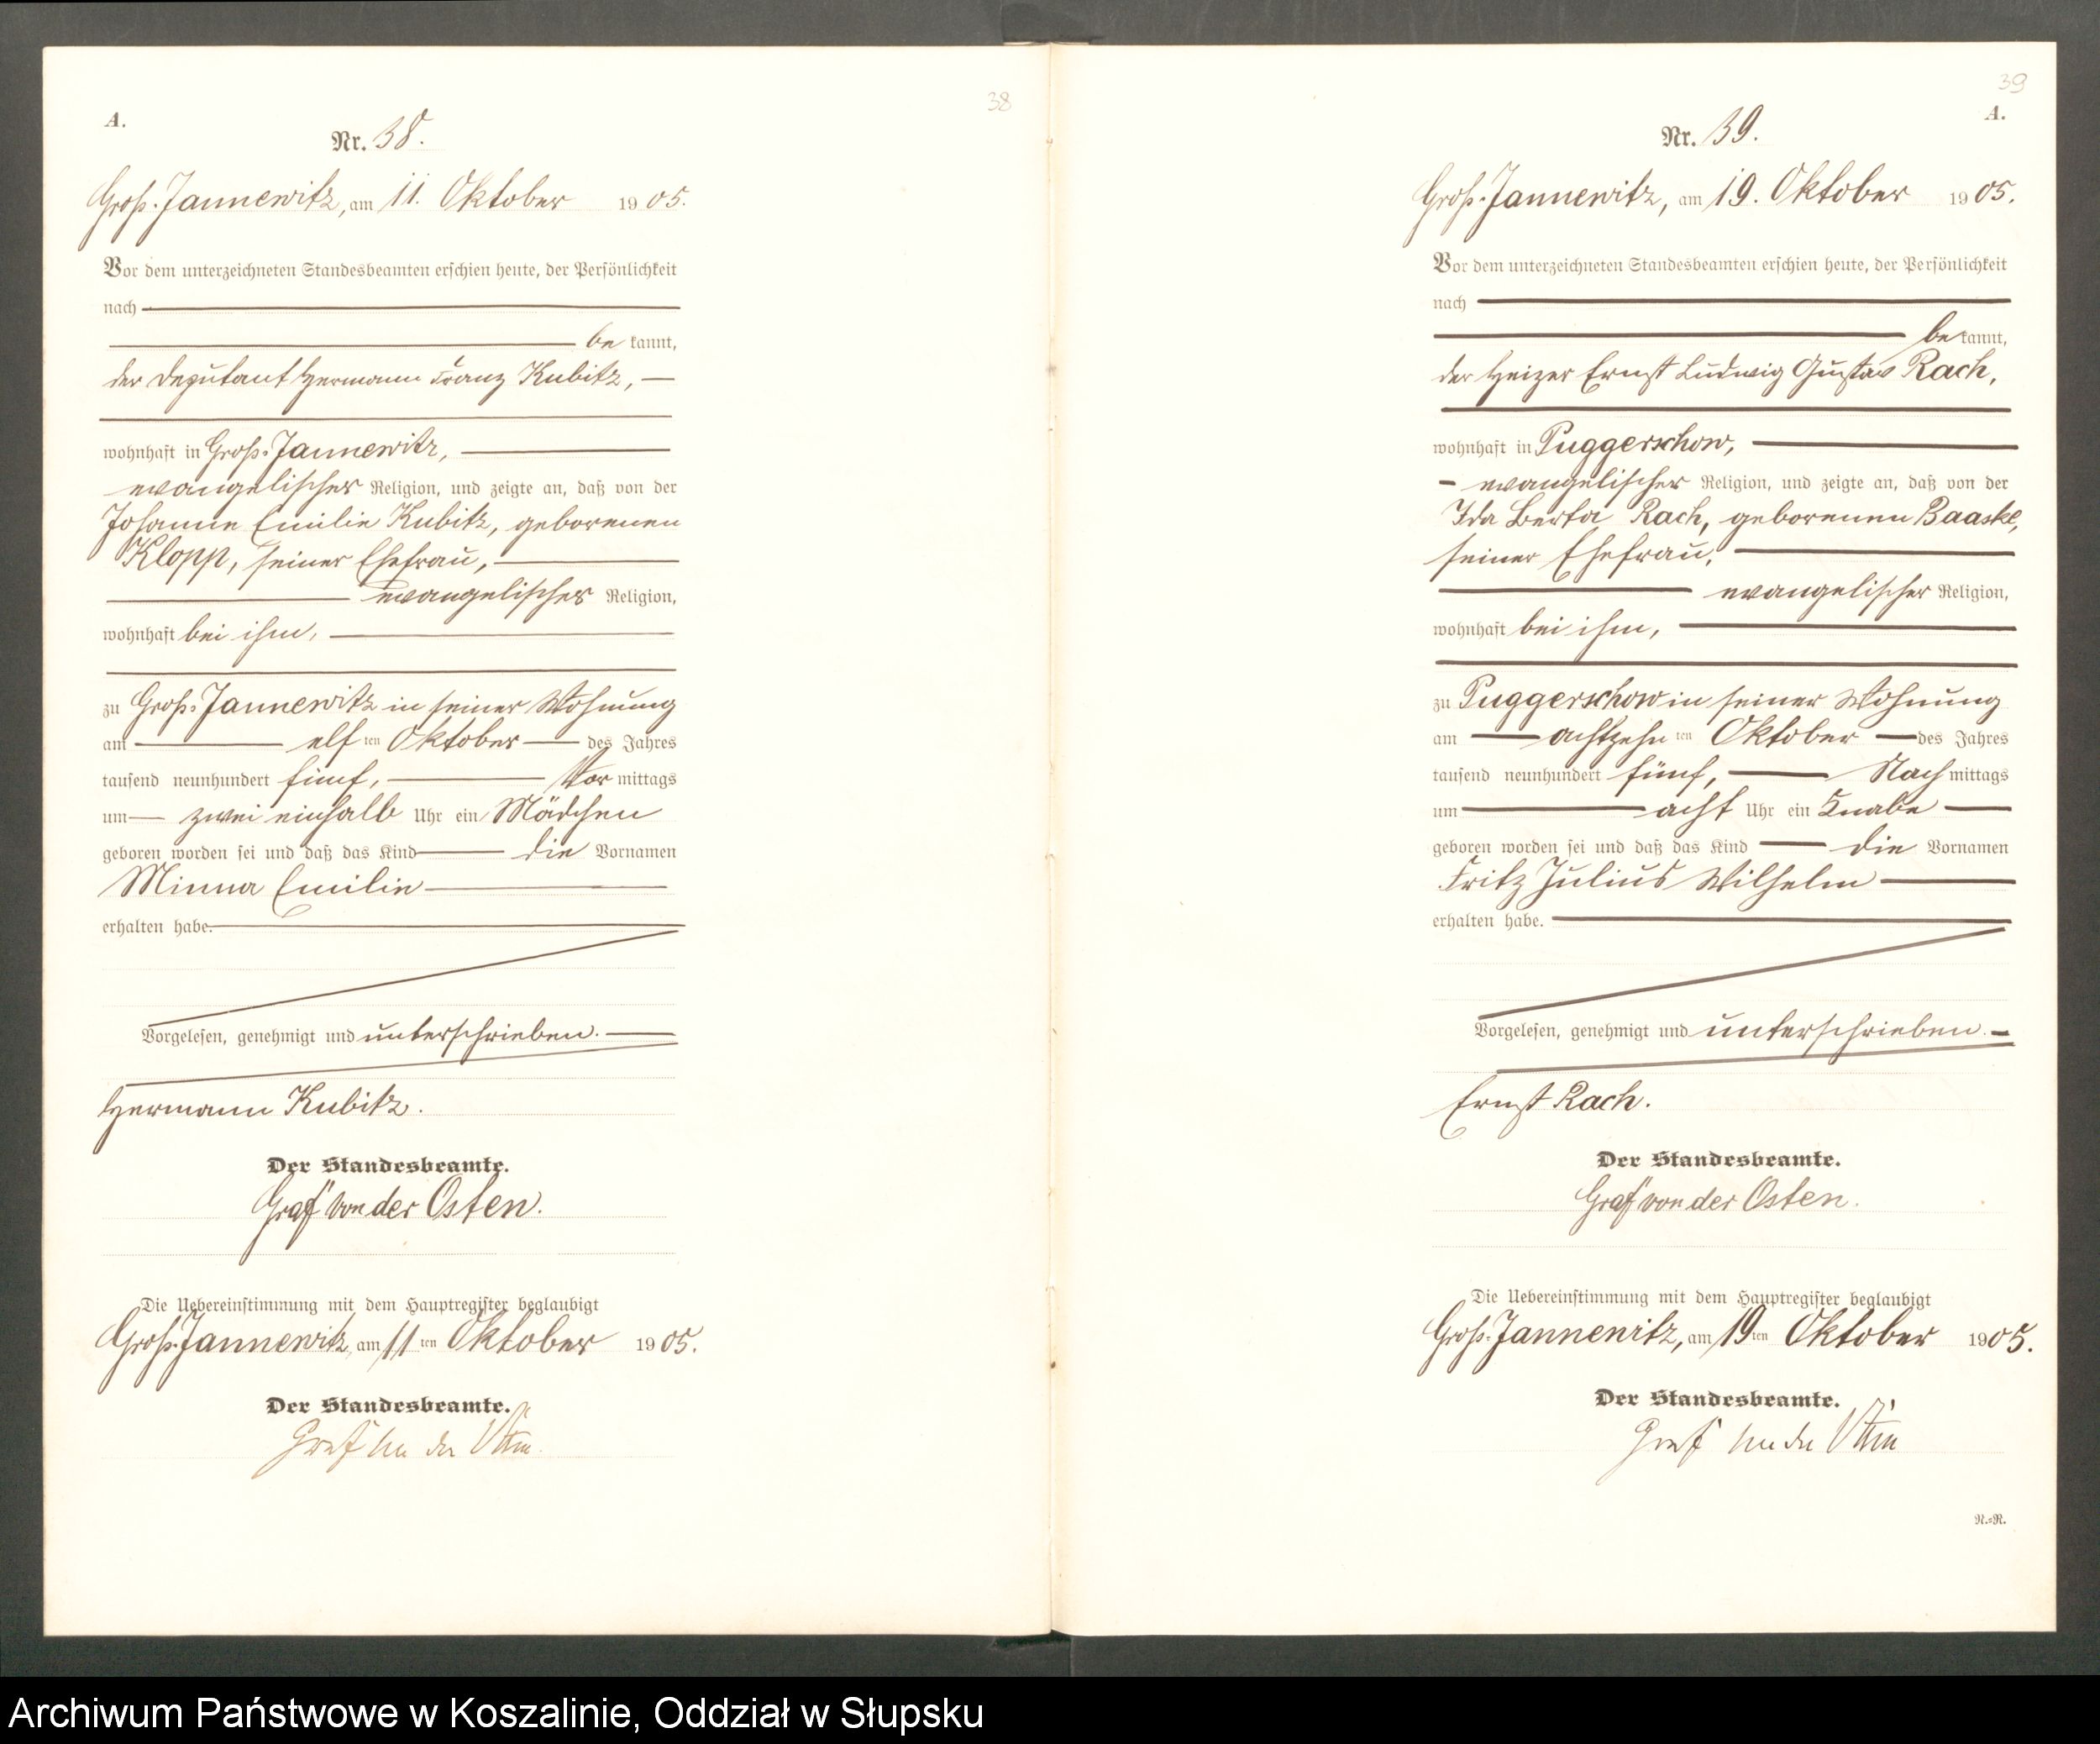 38
A.
Nr. 38.
Groß-Jannewitz, am 11. Oktober 1905.
Vor dem unterzeichneten Standesbeamten erschien heute, der Persönlichkeit
nach
bekannt,
der Deputant Hermann Franz Kubitz,
wohnhaft in Groß-Jannewitz,
evangelischer Religion, und zeigte an, daß von der
Johanne Emilie Kubitz, geborenen
Klopp, seiner Ehefrau,
evangelischer Religion,
wohnhaft bei ihm,
zu Groß-Jannewitz in seiner Wohnung
am elften Oktober des Jahres
tausend neunhundert fünf, Vormittags
um zwei einhalb Uhr ein Mädchen
geboren worden sei und daß das Kind die Vornamen
Minna Emilie
erhalten habe.
Vorgelesen, genehmigt und unterschrieben.
Hermann Kubitz.
Der Standesbeamte.
Graf von der Osten.
Die Uebereinstimmung mit dem Hauptregister beglaubigt
Groß-Jannewitz, am 11ten Oktober 1905.
Der Standesbeamte.
Graf von der Osten
39
A.
Nr. 39.
Groß-Jannewitz, am 19. Oktober 1905.
Vor dem unterzeichneten Standesbeamten erschien heute, der Persönlichkeit
nach
bekannt,
der Heizer Ernst Ludwig Gustav Rach,
wohnhaft in Puggerschow,
evangelischer Religion, und zeigte an, daß von der
Ida Berta Rach, geborenen Baaske,
seiner Ehefrau,
evangelischer Religion,
wohnhaft bei ihm,
zu Puggerschow in seiner Wohnung
am achtzehnten Oktober des Jahres
tausend neunhundert fünf, Nachmittags
um acht Uhr ein Knabe
geboren worden sei und daß das Kind die Vornamen
Fritz Julius Wilhelm
erhalten habe.
Vorgelesen, genehmigt und unterschrieben.
Ernst Rach.
Der Standesbeamte.
Graf von der Osten.
Die Uebereinstimmung mit dem Hauptregister beglaubigt
Groß-Jannewitz, am 19ten Oktober 1905.
Der Standesbeamte.
Graf von der Osten
N.-R.
Archiwum Państwowe w Koszalinie, Oddział w Słupsku